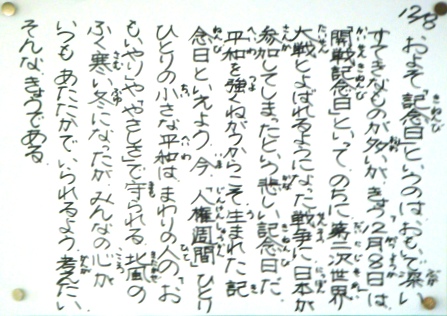 12/8
およそ「記念日」というのはおもて深い
すてきなものが多いが、きょう12月8日は
「開戦記念日」といって、のちに第二次世界
大戦とよばれるようになった戦争に日本が
参加してしまったという悲しい記念日だ。
平和を強くねがうからこそ生まれた記
念日といえよう。今、「人権週間」。ひとり
ひとりの小さな平和は、まわりの人の「お
もいやりや、やさしさ」で守られる。北風の
ふく寒い冬になったが、みんなの心が
いつもあたたかでいられるよう、考えたい。
そんなきょうである。